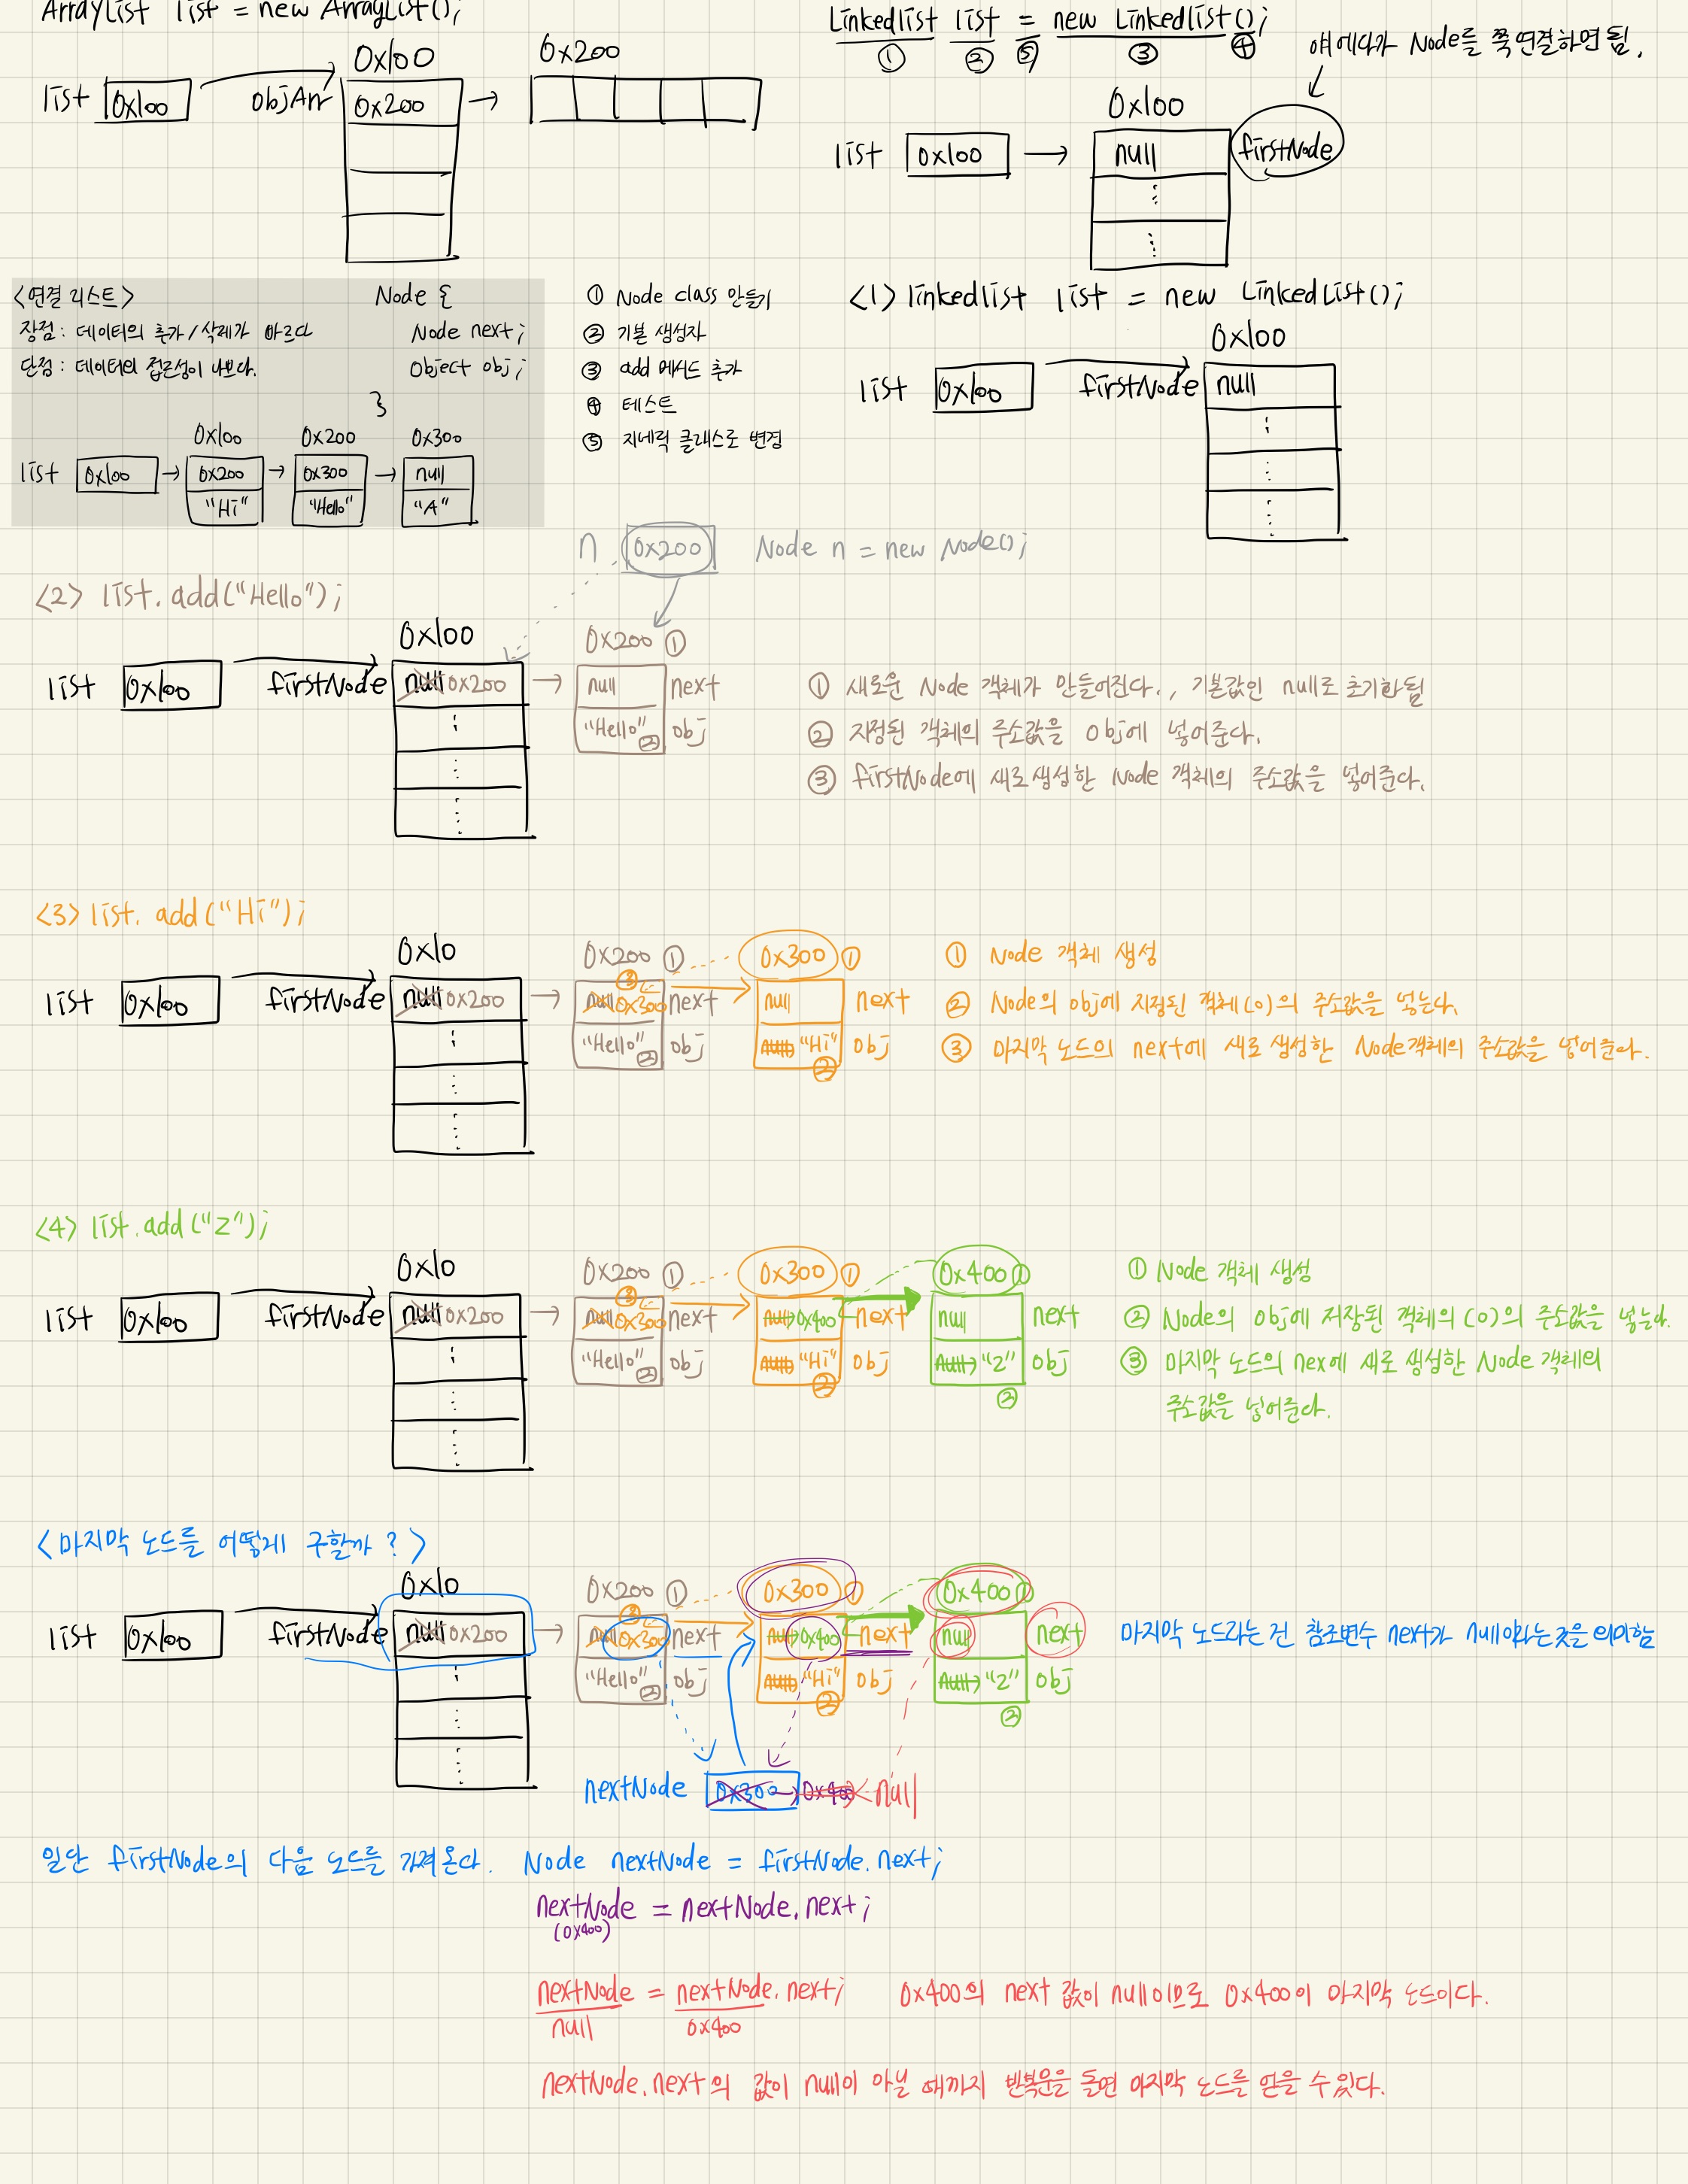 ArrayList list = new ArrayList();
0x100
0x200
list 0x100 objArr 0x200
Linkedlist list = new Linkedlist();
① ② ⑤ ③ ④
얘에다가 Node를 쭉 연결하면 됨.
0x100
list 0x100 null firstNode
<연결 리스트>
장점 : 데이터의 추가/삭제가 빠르다
단점 : 데이터의 접근성이 나쁘다.
Node {
Node next;
Object obj;
}
0x100 0x200 0x300
list 0x100 0x200 0x300 null
"Hi" "Hello" "A"
① Node class 만들기
② 기본 생성자
③ add 메서드 추가
④ 테스트
⑤ 지네릭 클래스로 변경
<1> linkedlist list = new LinkedList();
0x100
list 0x100 firstNode null
n 0x200 Node n = new Node();
<2> list.add("Hello");
0x100 0x200 ①
list 0x100 firstNode null 0x200 null next
"Hello" ② obj
① 새로운 Node 객체가 만들어진다., 기본값인 null로 초기화됨
② 지정된 객체의 주소값을 obj에 넣어준다.
③ firstNode에 새로 생성한 Node 객체의 주소값을 넣어준다.
<3> list.add("Hi");
0x10 0x200 ① 0x300 ①
③
list 0x100 firstNode null 0x200 null 0x300 next null next
"Hello" ② obj null "Hi" obj
②
① Node 객체 생성
② Node의 obj에 지정된 객체(o)의 주소값을 넣는다.
③ 마지막 노드의 next에 새로 생성한 Node객체의 주소값을 넣어준다.
<4> list.add("Z");
0x10 0x200 ① 0x300 ① 0x400 ①
③
list 0x100 firstNode null 0x200 null 0x300 next null 0x400 next null next
"Hello" ② obj null "Hi" obj null "Z" obj
② ②
① Node 객체 생성
② Node의 obj에 저장된 객체의 (o)의 주소값을 넣는다.
③ 마지막 노드의 nex에 새로 생성한 Node 객체의
주소값을 넣어준다.
<마지막 노드를 어떻게 구할까?>
0x10 0x200 ① 0x300 ① 0x400 ①
③
list 0x100 firstNode null 0x200 null 0x300 next null 0x400 next null next
"Hello" ② obj null "Hi" obj null "Z" obj
② ②
마지막 노드라는 건 참조변수 next가 null이라는 것을 의미함
nextNode 0x300 0x400 null
일단 firstNode의 다음 노드를 가져온다. Node nextNode = firstNode.next;
nextNode = nextNode.next;
(0x400)
nextNode = nextNode.next; 0x400의 next 값이 null이므로 0x400이 마지막 노드이다.
null 0x400
nextNode.next의 값이 null이 아닐 때까지 반복문을 돌면 마지막 노드를 얻을 수 있다.